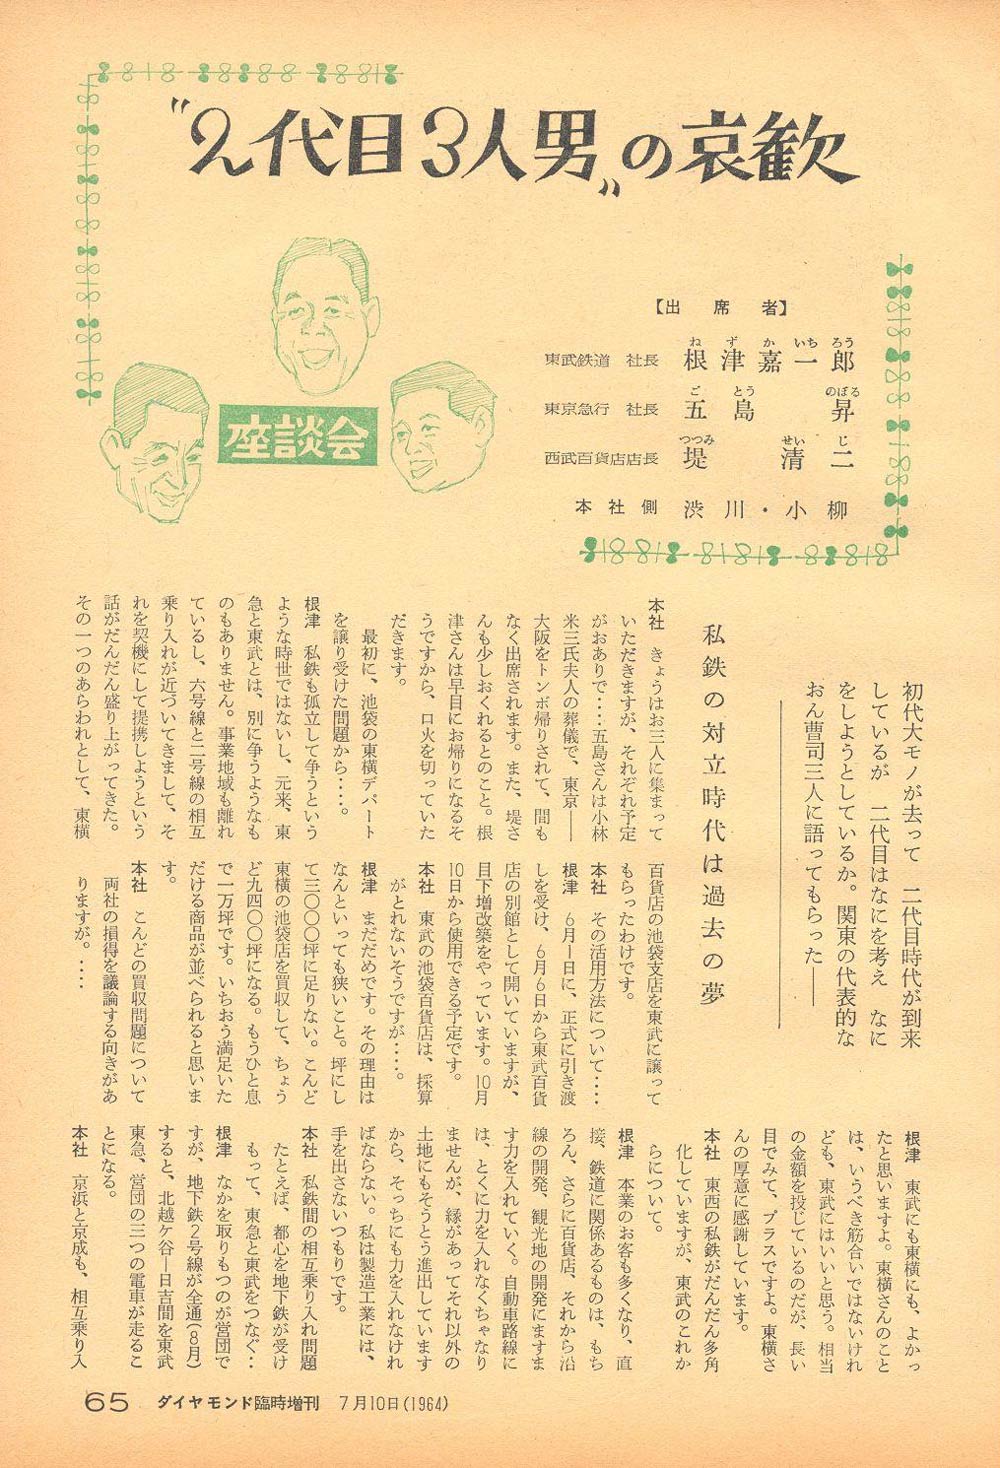 "2代目3人男"の哀歓
座談会
【出席者】
東武鉄道 社長 根津嘉一郎
ねづかいちろう
東京急行 社長 五島昇
ごとうのぼる
西武百貨店店長 堤清二
つつみせいじ
本社側 渋川・小柳
初代大モノが去って 二代目時代が到来
しているが 二代目はなにを考え なに
をしようとしているか。関東の代表的な
おん曹司三人に語ってもらった——
私鉄の対立時代は過去の夢
本社 きょうはお三人に集まって
いただきますが、それぞれ予定
がおありで‥‥五島さんは小林
米三氏夫人の葬儀で、東京——
大阪をトンボ帰りされて、間も
なく出席されます。また、堤さ
んも少しおくれるとのこと。根
津さんは早目にお帰りになるそ
うですから、口火を切っていた
だきます。
最初に、池袋の東横デパート
を譲り受けた問題から‥‥。
根津 私鉄も孤立して争うという
ような時世ではないし、元来、東
急と東武とは、別に争うようなも
のもありません。事業地域も離れ
ているし、六号線と二号線の相互
乗り入れが近づいてきまして、そ
れを契機にして提携しようという
話がだんだん盛り上がってきた。
その一つのあらわれとして、東横
百貨店の池袋支店を東武に譲って
もらったわけです。
本社 その活用方法について‥‥
根津 6月1日に、正式に引き渡
しを受け、6月6日から東武百貨
店の別館として開いていますが、
目下増改築をやっています。10月
10日から使用できる予定です。
本社 東武の池袋百貨店は、採算
がとれないそうですが‥‥。
根津 まだだめです。その理由は
なんといっても狭いこと。坪にし
て三〇〇〇坪に足りない。こんど
東横の池袋店を買収して、ちょう
ど九四〇〇坪になる。もうひと息
で一万坪です。いちおう満足いた
だける商品が並べられると思いま
す。
本社 こんどの買収問題について
両社の損得を議論する向きがあ
りますが。‥‥
根津 東武にも東横にも、よかっ
たと思いますよ。東横さんのこと
は、いうべき筋合いではないけれ
ども、東武にはいいと思う。相当
の金額を投じているのだが、長い
目でみて、プラスですよ。東横さ
んの厚意に感謝しています。
本社 東西の私鉄がだんだん多角
化していますが、東武のこれか
らについて。
根津 本業のお客も多くなり、直
接、鉄道に関係あるものは、もち
ろん、さらに百貨店、それから沿
線の開発、観光地の開発にますま
す力を入れていく。自動車路線に
は、とくに力を入れなくちゃなり
ませんが、縁があってそれ以外の
土地にもそうとう進出しています
から、そっちにも力を入れなけれ
ばならない。私は製造工業には、
手を出さないつもりです。
本社 私鉄間の相互乗り入れ問題
たとえば、都心を地下鉄が受け
もって、東急と東武をつなぐ‥
根津 なかを取りもつのが営団で
すが、地下鉄2号線が全通(8月)
すると、北越ケ谷—日吉間を東武
東急、営団の三つの電車が走るこ
とになる。
本社 京浜と京成も、相互乗り入
65 ダイヤモンド臨時増刊 7月10日(1964)